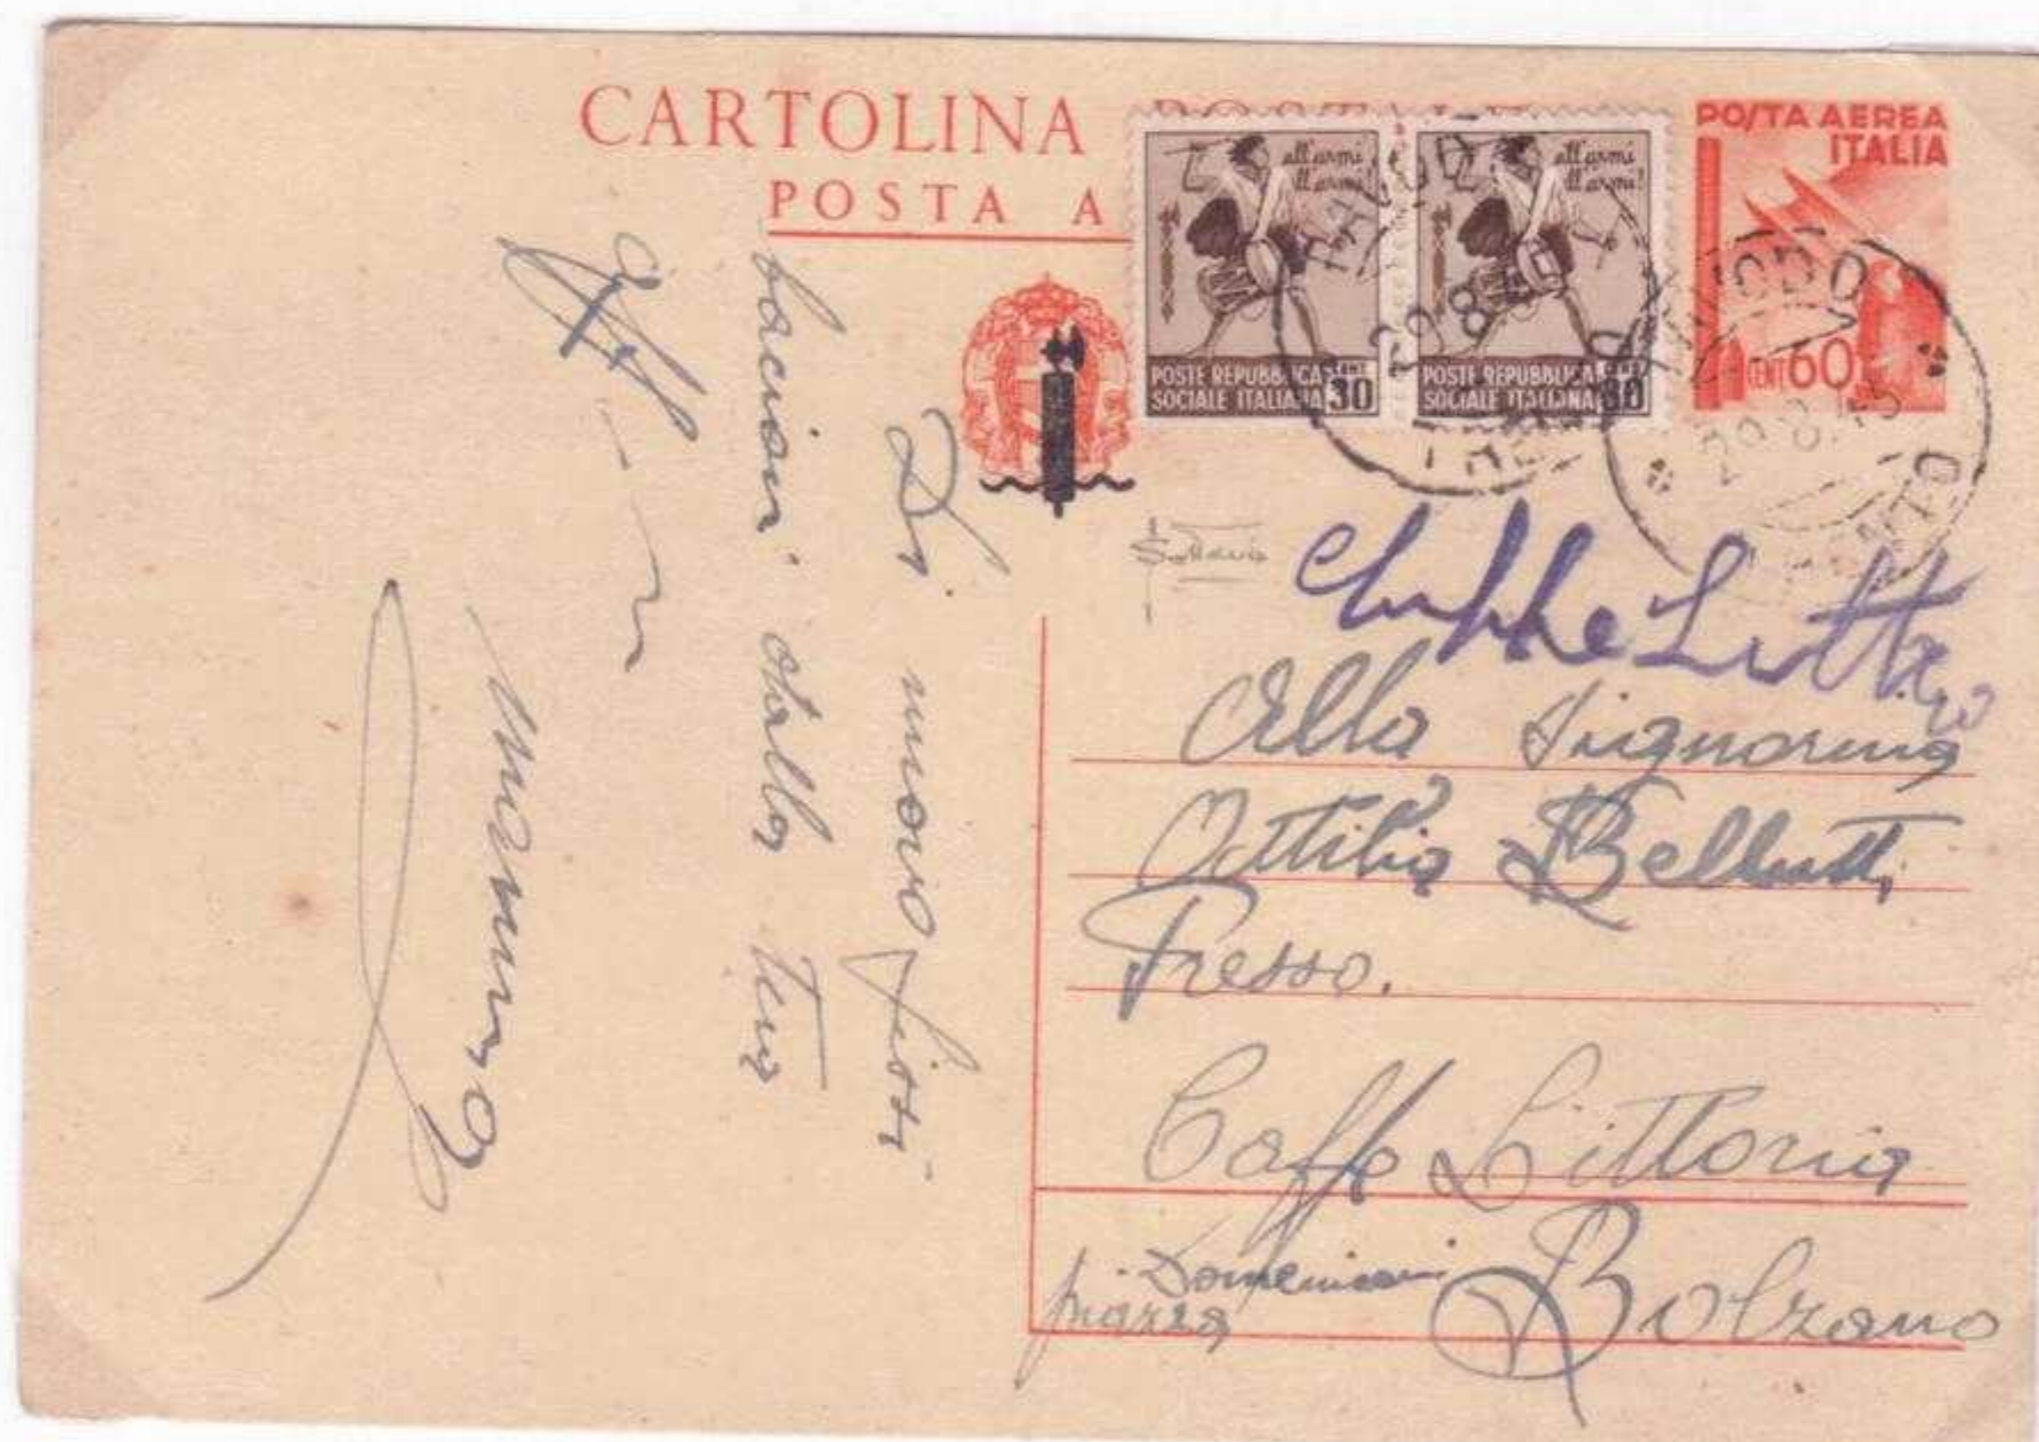 CARTOLINA
POSTA A
POSTA AEREA
ITALIA
CENT 60
all'armi
all'armi!
POSTE REPUBBLICA
SOCIALE ITALIANA 30
all'armi
all'armi!
POSTE REPUBBLICA
SOCIALE ITALIANA 30
THIODO
29.8.45
TRENTO
Alla Signorina
Ottilia Bellutti
Presso.
Caffe Littoria
Domenicani
piazza
Bolzano
Di nuovo
bacioni dalla tua
mamma